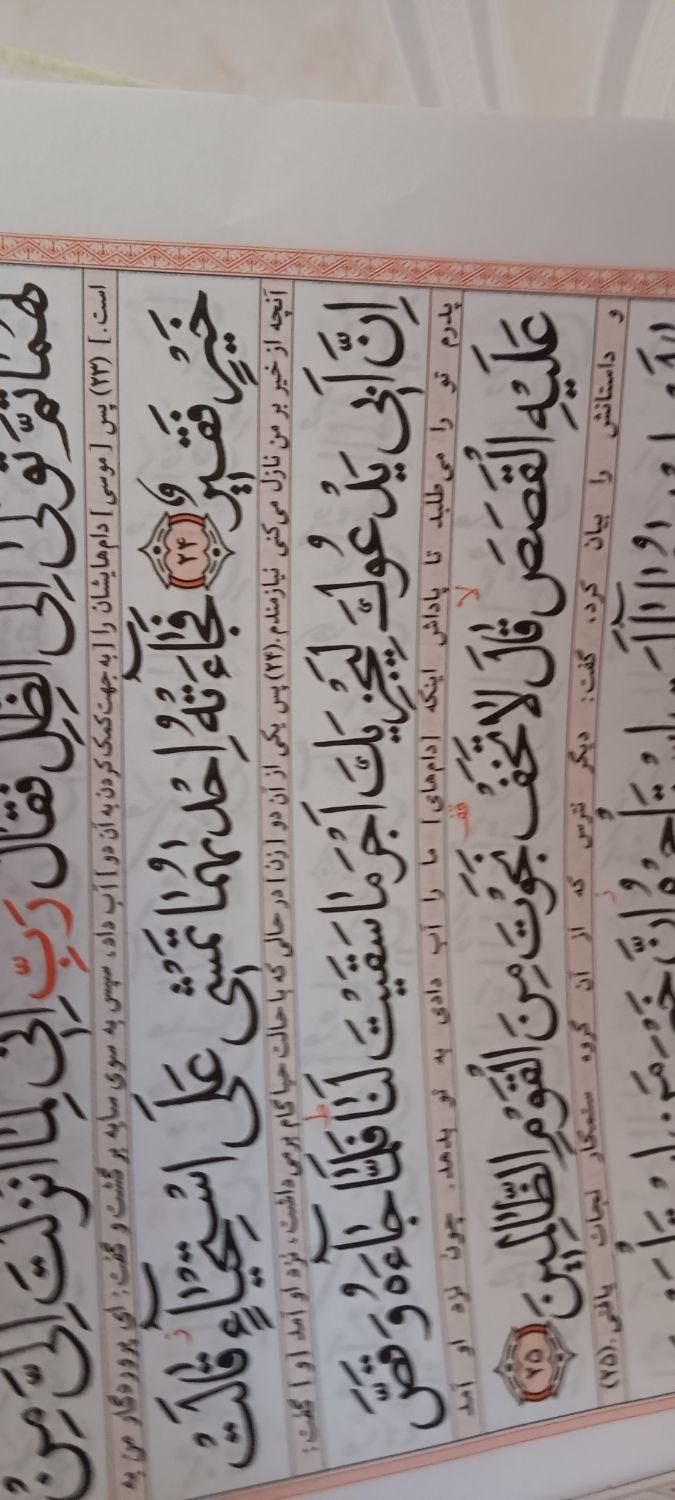 هُمَا ثُمَّ تَوَلّٰى اِلَى الظِّلِّ فَقَالَ رَبِّ اِنّٖى لِمَا اَنْزَلْتَ اِلَىَّ مِنْ
است.] (۲۳) پس [موسی] دام‌هایشان را [به جهت کمک کردن به آن دو] آب داد، سپس به سوی سایه برگشت و گفت: ای پروردگار من به
خَيْرٍ فَقٖيرٌ ۲۴ فَجَٓاءَتْهُ اِحْدٰىهُمَا تَمْشٖى عَلَى اسْتِحْيَٓاءٍ ز قَالَتْ
آنچه از خیر بر من نازل می‌کنی نیازمندم. (۲۴) پس یکی از آن دو [زن] در حالی که با حالت حیا گام برمی‌داشت، نزد او آمد [و] گفت:
اِنَّ اَبٖى يَدْعُوكَ لِيَجْزِيَكَ اَجْرَ مَا سَقَيْتَ لَنَا ط فَلَمَّا جَٓاءَهُ وَ قَصَّ
پدرم تو را می‌طلبد تا پاداش اینکه [دام‌های] ما را آب دادی به تو بدهد. چون نزد او آمد
عَلَيْهِ الْقَصَصَ لا قَالَ لَا تَخَفْ قف نَجَوْتَ مِنَ الْقَوْمِ الظَّالِمٖينَ ۲۵
و داستانش را بیان کرد، گفت: دیگر نترس که از آن گروه ستمکار نجات یافتی. (۲۵)